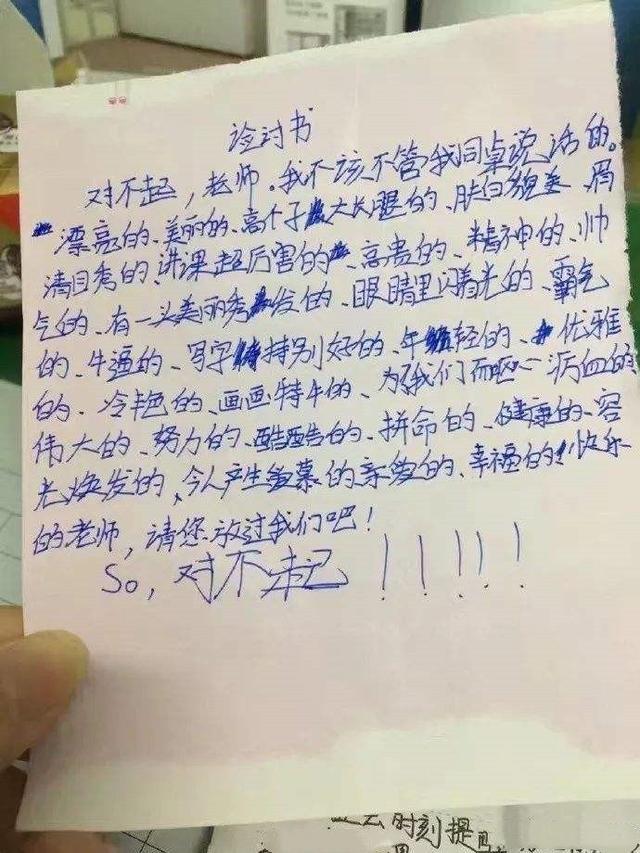 检讨书
对不起，老师。我不该不管我同桌说话的。
漂亮的、美丽的、高个子大长腿的、肤白貌美、眉
清目秀的、讲课超厉害的、高贵的、精神的、帅
气的、有一头美丽秀发的、眼睛里闪着光的、霸气
的、牛逼的、写字特别好的、年轻的、优雅
的、冷艳的、画画特牛的、为了我们而呕心沥血的
伟大的、努力的、酷酷的、拼命的、健康的、容
光焕发的、令人产生羡慕的亲爱的、幸福的快乐
的老师，请您放过我们吧！
So，对不起！！！！！
时刻提